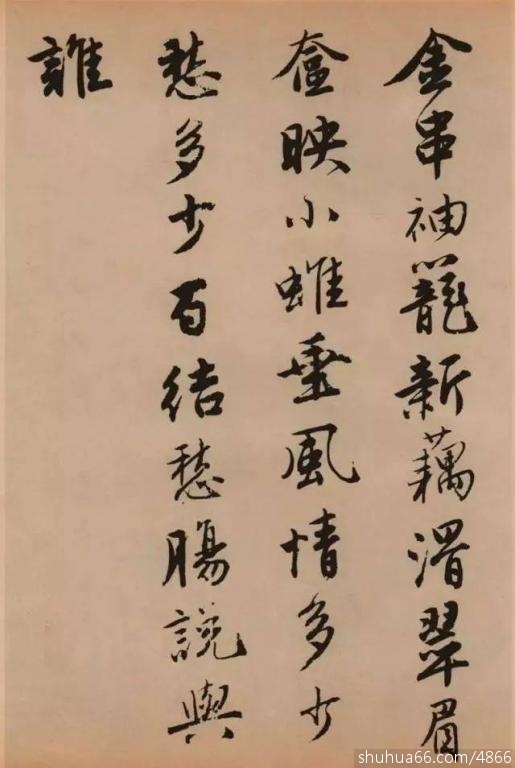 金串袖籠新藕滑翠眉
奩映小蛾垂風情多少
愁多少百結愁腸說與
誰
shuhua66.com/4866